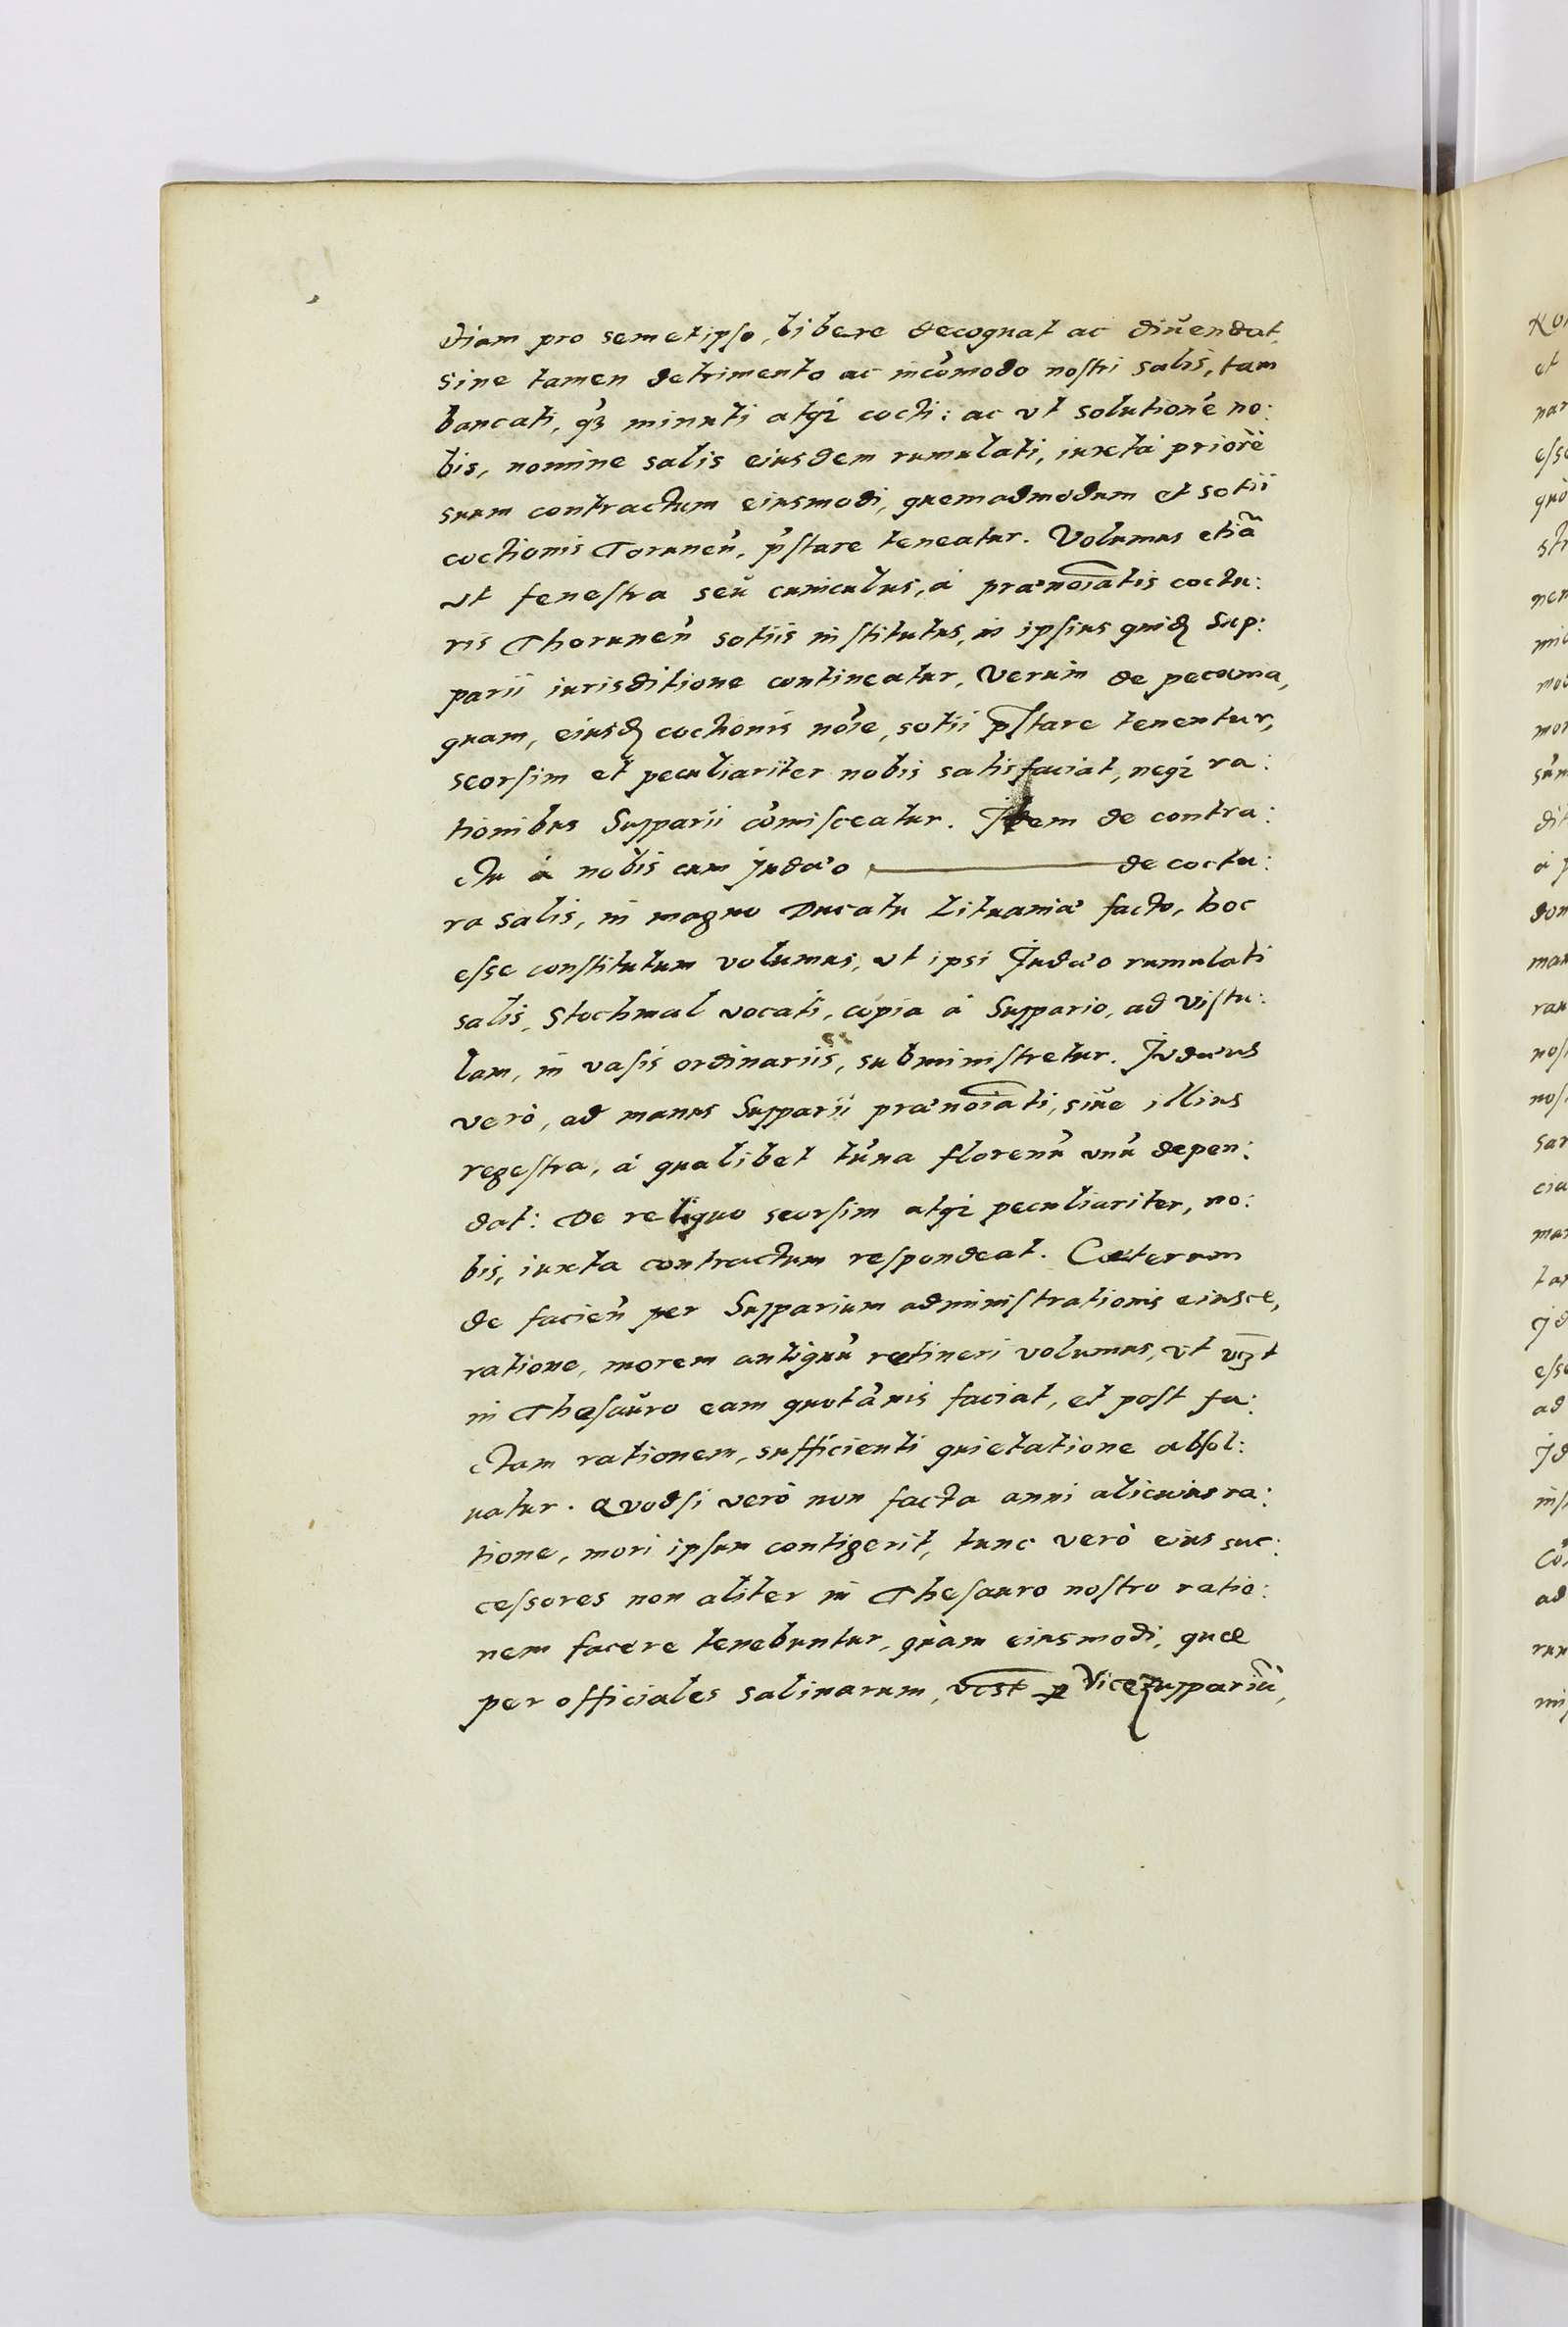 diam pro semetipso, libere decoquat ac diŭendat,
sine tamen detrimento ac incōmodo nostri salis, tam
bancati, qʒ̃ minuti atqʒ cocti: ac vt solutionē no:
bis, nomine salis eiusdem rumulati, iuxta priorē
suum contractum eiusmodi, quemadmodum et sotii
coctionis Torunen̄, p̄stare teneatur. Volumus etiā
vt fenestra seŭ cuniculus, à prænoīatis coctu:
ris Thorunen̄ sotiis institutus, in ipsius quidꝫ Sup:
parii iurisditione contineatur, Verum de pecunia,
quam, eiusdꝫ coctionis noīe, sotii p̄stare tenentur,
seorsim et peculiariter nobis satisfaciat, neqʒ ra:
tionibus Supparii cōmisceatur. Item de contra:
ctu à nobis cum Judæo ——— de coctu:
ra salis, in magno Ducatu Lituaniæ facto, hoc
esse constitutum volumus, vt ipsi Judæo rumulati
salis, Stochmal vocati, copia à Suppario, ad Vistu:
lam, in vasis ordinariis, subministretur. Judæus
verò, ad manus Supparii prænoīati, siŭe illius
regestra, à qualibet tūna florenū vnū depen:
dat: De reliquo seorsim atqʒ peculiariter, no:
bis, iuxta contractum respondeat. Cæterum
de facien̄ per Supparium administrationis eiusce,
ratione, morem antiquū retineri volumus, vt vcʒt
in Thesaŭro eam quotānis faciat, et post fa:
ctam rationem, sufficienti quietatione absol:
uatur. Quodsi verò non facta anni alicuius ra:
tione, mori ipsum contigerit, tunc verò eius suc:
cessores non aliter in Thesauro nostro ratio:
nem facere tenebuntur, quàm eiusmodi, quæ
per officiales salinarum, vcʒt ꝑ Vicezuppariū,